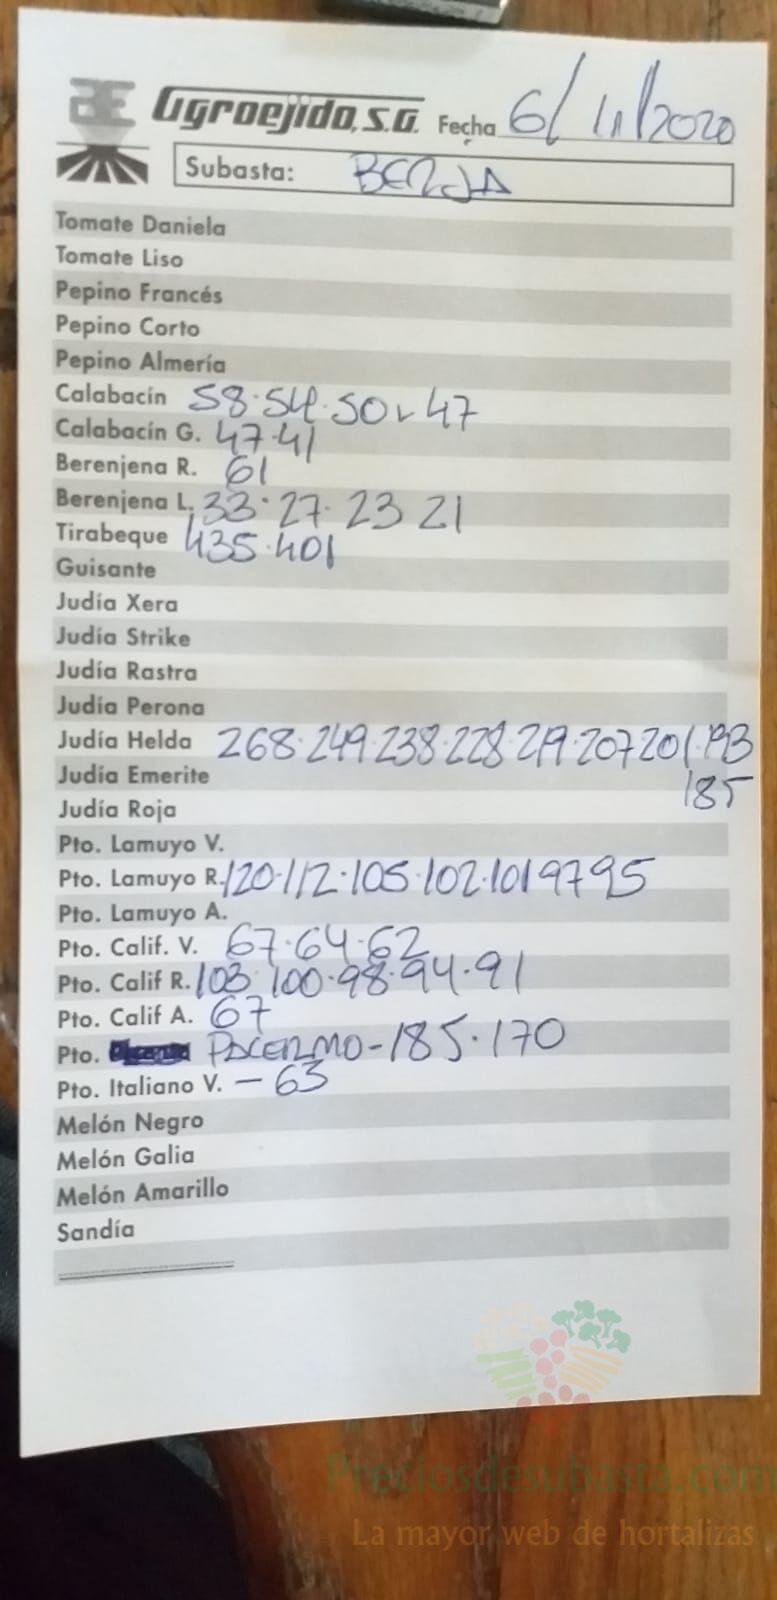 Agroejido, S.A. Fecha 6/11/2020
Subasta: BERJA
Tomate Daniela
Tomate Liso
Pepino Francés
Pepino Corto
Pepino Almería
Calabacín 58·54·50·47
Calabacín G. 47·41
Berenjena R. 61
Berenjena L. 33·27·23 21
Tirabeque 435·401
Guisante
Judía Xera
Judía Strike
Judía Rastra
Judía Perona
Judía Helda 268·249·238·228·219·207 201·193
Judía Emerite 185
Judía Roja
Pto. Lamuyo V.
Pto. Lamuyo R. 120·112·105·102·101 97 95
Pto. Lamuyo A.
Pto. Calif. V. 67·64·62
Pto. Calif R. 103 100·98·94·91
Pto. Calif A. 67
Pto. PALERMO-185·170
Pto. Italiano V. - 63
Melón Negro
Melón Galia
Melón Amarillo
Sandía
Preciosdesubasta.com
La mayor web de hortalizas